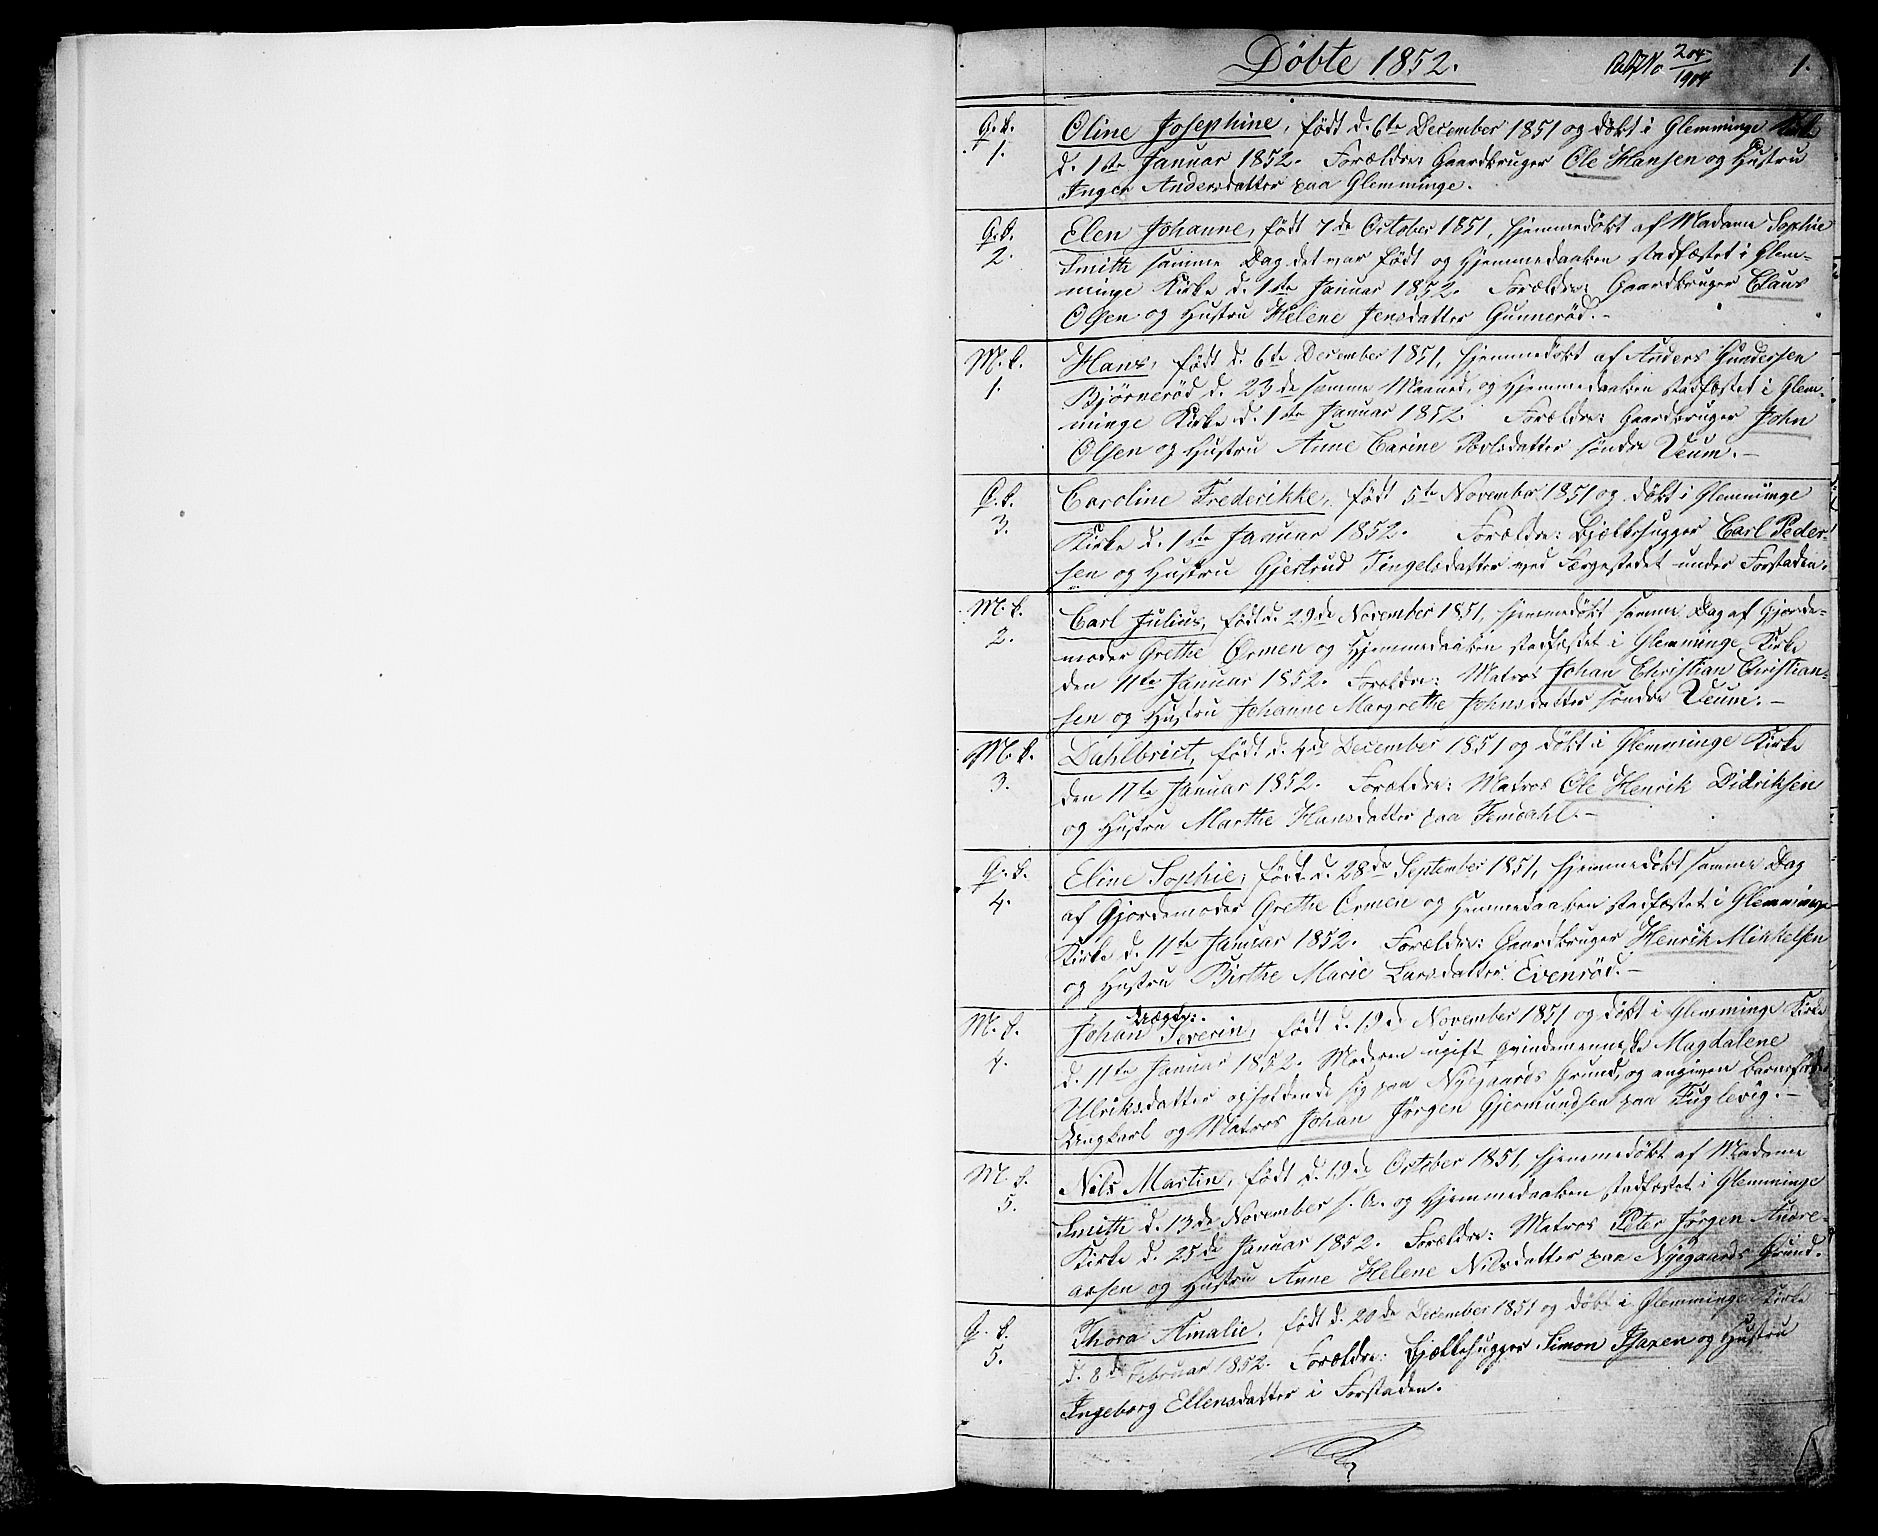 Döbte 1852.
204
1904
1.
1.
Oline Josephine, född d. 6te December 1851 og döbt i Glemminge Kirke
d. 1ste Januar 1852. Forældre: Gaardbruger Ole Hansen og Hustru
Inger Andersdatter paa Glemminge.
2.
Elen Johanne, født 7de October 1851, hjemmedöbt af Madam Sophie
Smith samme Dag det var født og Hjemmedaaben stadfæstet i Glem-
minge Kirke d. 1ste Januar 1852. Forældre: Gaardbruger Claus
Olsen og Hustru Helene Jensdatter Gunneröd.-
M.k.
1.
Hans, født d. 6te December 1851, hjemmedöbt af Anders Gundersen
Björneröd d. 23de samme Maaned, og Hjemmedaaben stadfæstet i Glem-
minge Kirke d. 1ste Januar 1852. Forældre: Gaardbruger John
Olsen og Hustru Anne Carine Povlsdatter söndre Veum.-
3.
Caroline Frederikke, født 5te November 1851 og döbt i Glemminge
Kirke d. 1ste Januar 1852. Forældre: Bjælkehugger Carl Peder-
sen og Hustru Gjertrud Tingelsdatter ved Færgestedet under Forstaden.
M.k.
2.
Carl Julius, født d. 29de November 1851, hjemmedöbt samme Dag af Gjorde-
moder Grethe Ormen og Hjemmedaaben stadfæstet i Glemminge Kirke
den 11te Januar 1852. Forældre: Matros Johan Christian Christian-
sen og Hustru Johanne Margrethe Johnsdatter söndre Veum.-
M.k.
3.
Dahlbrict, født d. 4de December 1851 og döbt i Glemminge Kirke
den 11te Januar 1852. Forældre: Matros Ole Henrik Didriksen
og Hustru Marthe Hansdatter paa Femdahl.-
4.
Eline Sophie, født d. 28de September 1851, hjemmedöbt samme Dag
af Gjordemoder Grethe Ormen og Hemmedaaben stadfæstet i Glemminge
Kirke d. 11te Januar 1852. Forældre: Gaardbruger Henrik Mikkelsen
og Hustru Birthe Marie Larsdatter Evenröd.-
M.k.
4.
Uægte:
Johan Severin, født d. 19de November 1851 og döbt i Glemminge Kirke
d. 11te Januar 1852. Moderen ugift Qvindemenneske Magdalene
Ulriksdatter opholdende sig paa Nygaards Grund, og angiven Barnefader
Ungkarl og Matros Johan Jörgen Gjermundsen paa Fuglevig.-
M.k.
5.
Nils Martin, født d. 19de October 1851, hjemmedöbt af Madame
Smith d. 13de November s. A. og Hjemmedaaben stadfæstet i Glemminge
Kirke d. 25de Januar 1852. Forældre: Matros Peter Jörgen Andre-
assen og Hustru Anne Helene Nilsdatter paa Nygaards Grund.
5.
Thora Amalie, født d. 20de December 1851 og döbt i Glemminge Kirke
d. 8de Februar 1852. Forældre: Bjælkehugger Simon Isaxen og Hustru
Ingeborg Ellensdatter i Forstaden.